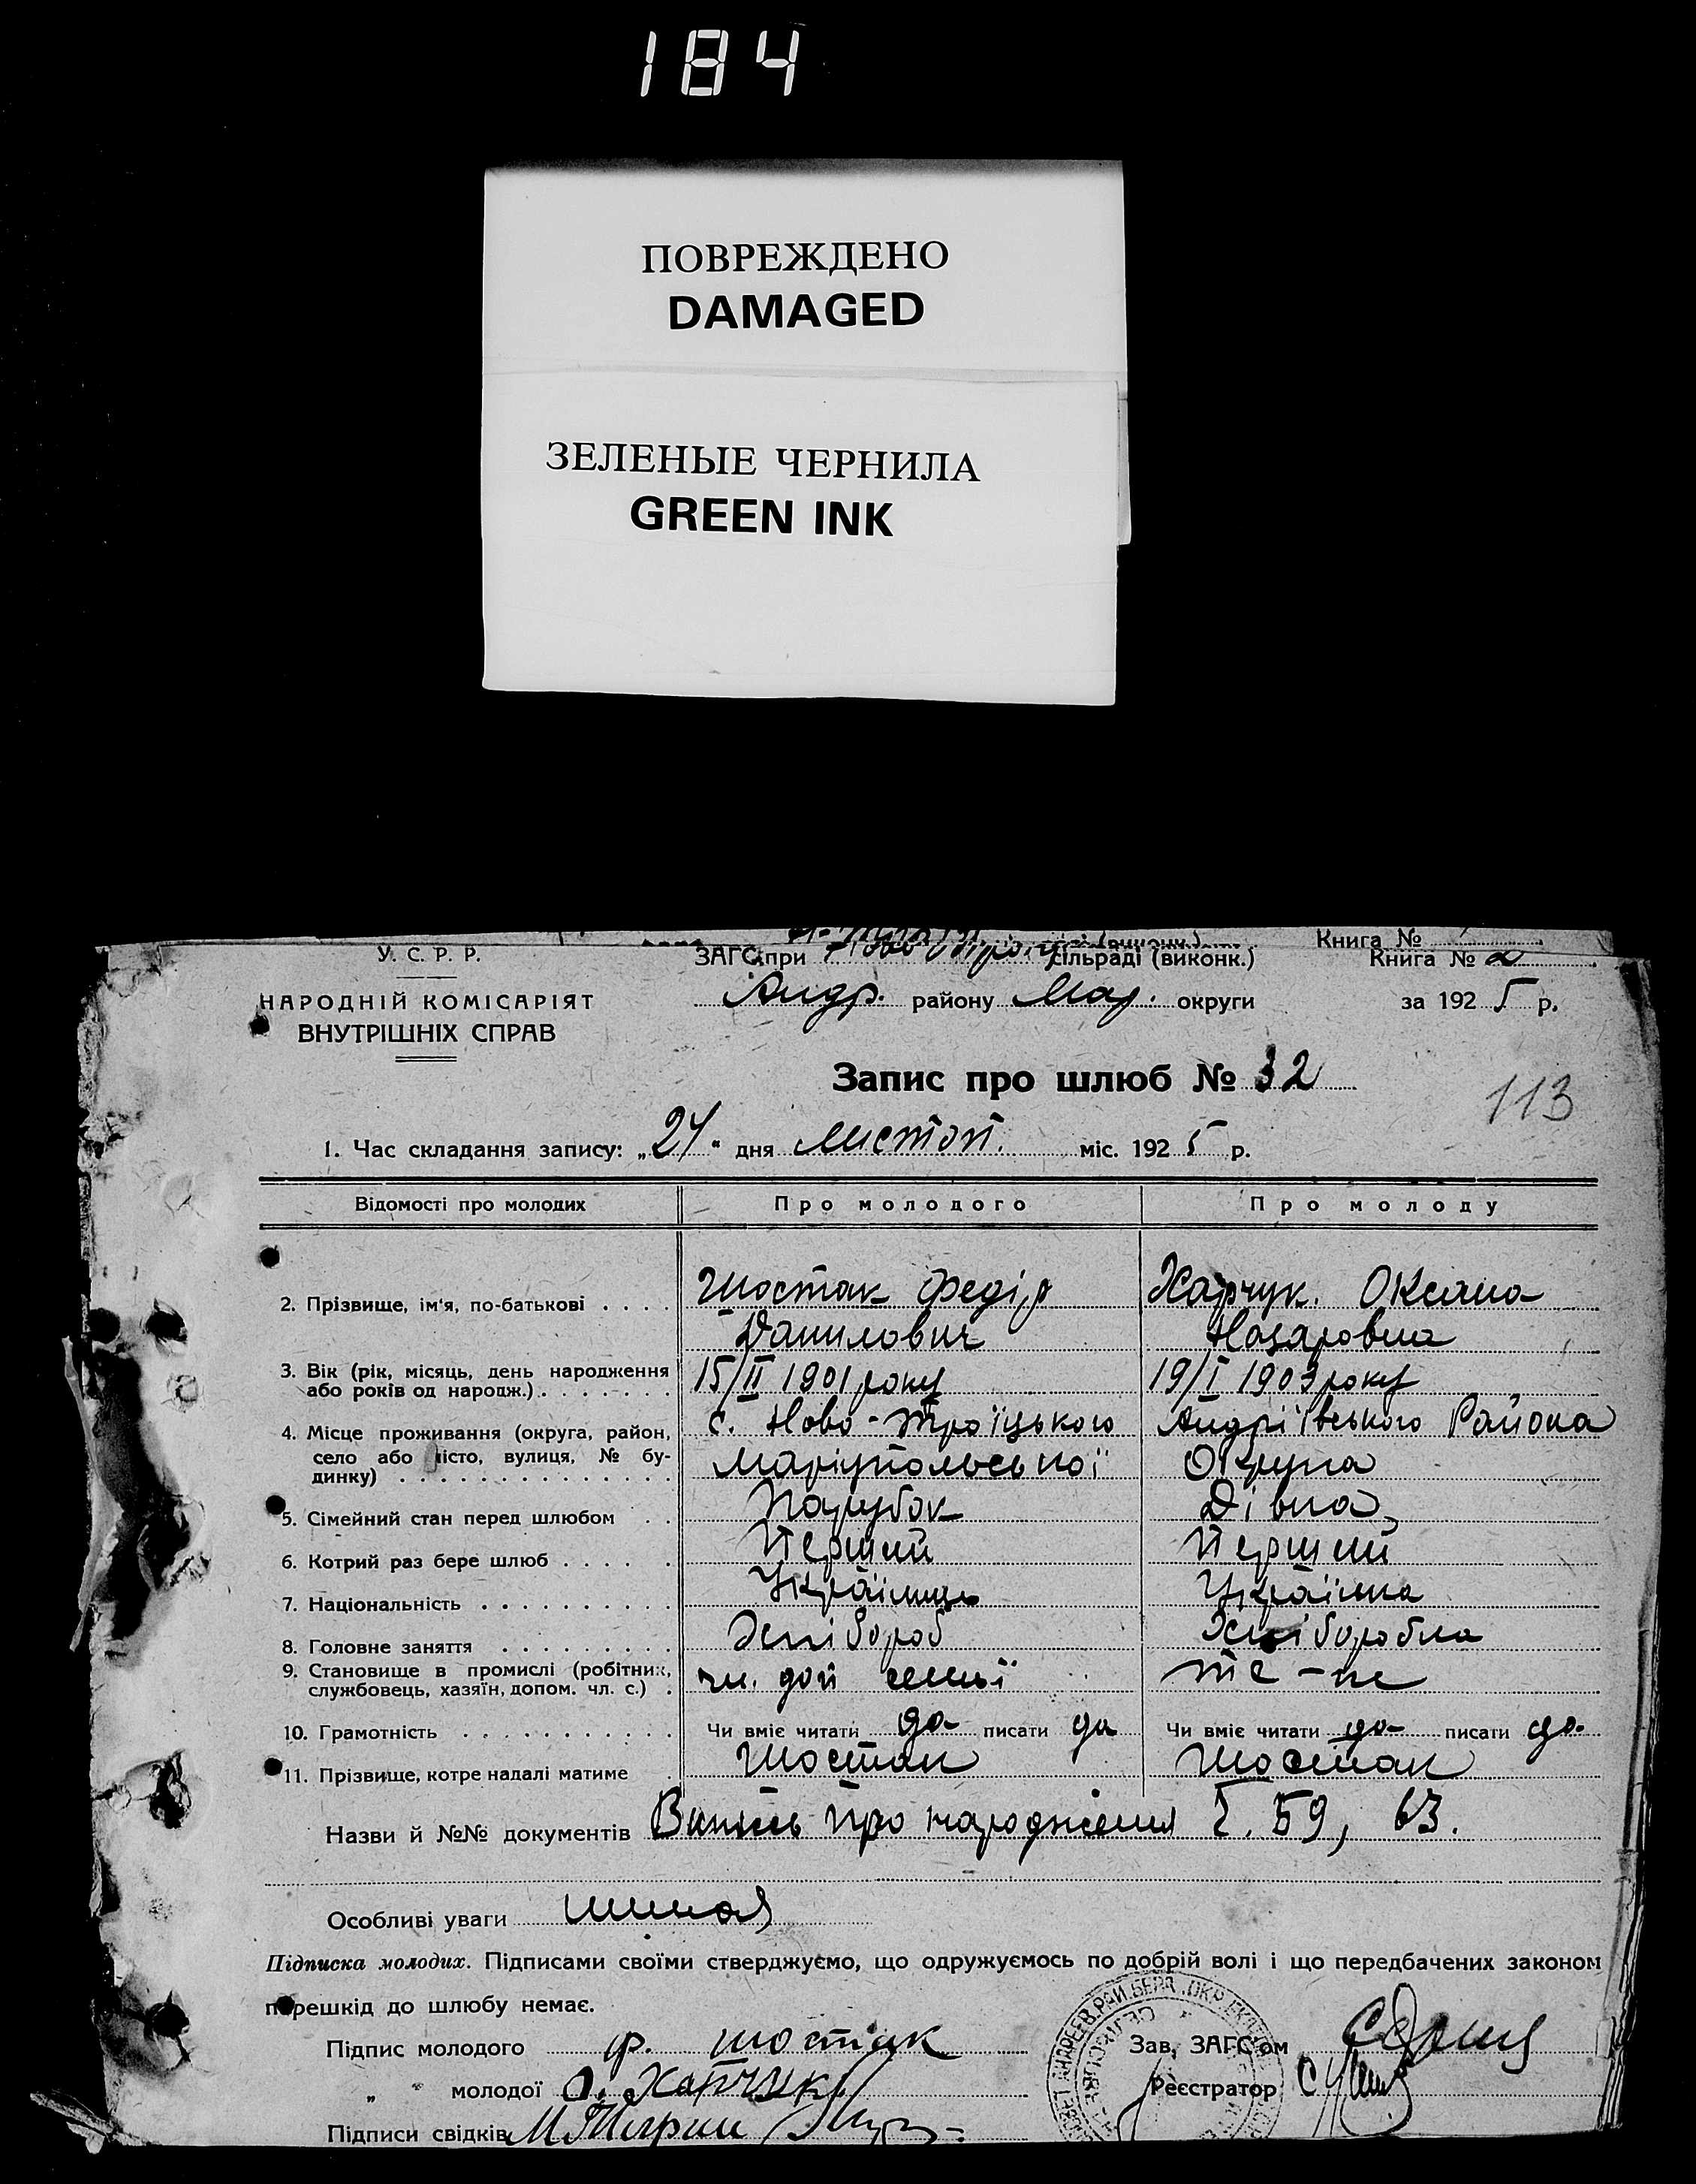 184
ПОВРЕЖДЕНО
DAMAGED
ЗЕЛЕНЫЕ ЧЕРНИЛА
GREEN INK
Книга №
У. С. Р. Р.
ЗАГС при Ново Троїц. сільраді (виконк.)
Книга № 2
НАРОДНІЙ КОМІСАРІЯТ
ВНУТРІШНІХ СПРАВ
Андр. району Мар. округи
за 1925 р.
Запис про шлюб № 32
113
1. Час складання запису: „24" дня листоп. міс. 1925 р.
Відомості про молодих Про молодого Про молоду
2. Прізвище, ім'я, по-батькові . . . . Шостак Федір Харчук. Оксана
Данилович Назаровна
3. Вік (рік, місяць, день народження
або років од народж.) . . . . . . . 15/II 1901 року 19/I 1903 року
4. Місце проживання (округа, район,
село або місто, вулиця, № бу-
динку) . . . . . . . . . . . . . .
с. Ново-Троїцького Андріївського Района
Маріупольської Округа
5. Сімейний стан перед шлюбом . . Парубок Дівка
6. Котрий раз бере шлюб . . . . . Перший Перший
7. Національність . . . . . . . . . Українець Українка
8. Головне заняття . . . . . . . . Хліbороб Хліборобка
9. Становище в промислі (робітник,
службовець, хазяїн, допом. чл. с.) . чл. доп семьї те-ж
10. Грамотність . . . . . . . . . . . Чи вміє читати да писати да Чи вміє читати да писати да
11. Прізвище, котре надалі матиме . Шостак Шостак
Назви й №№ документів Випись про народження 59, 63.
Особливі уваги
Підписка молодих. Підписами своїми стверджуємо, що одружуємось по добрій волі і що передбачених законом
перешкід до шлюбу немає.
Підпис молодого ф. шостак
Зав. ЗАГС'ом
„ " молодої О. Харчук
Реєстратор
Підписи свідків